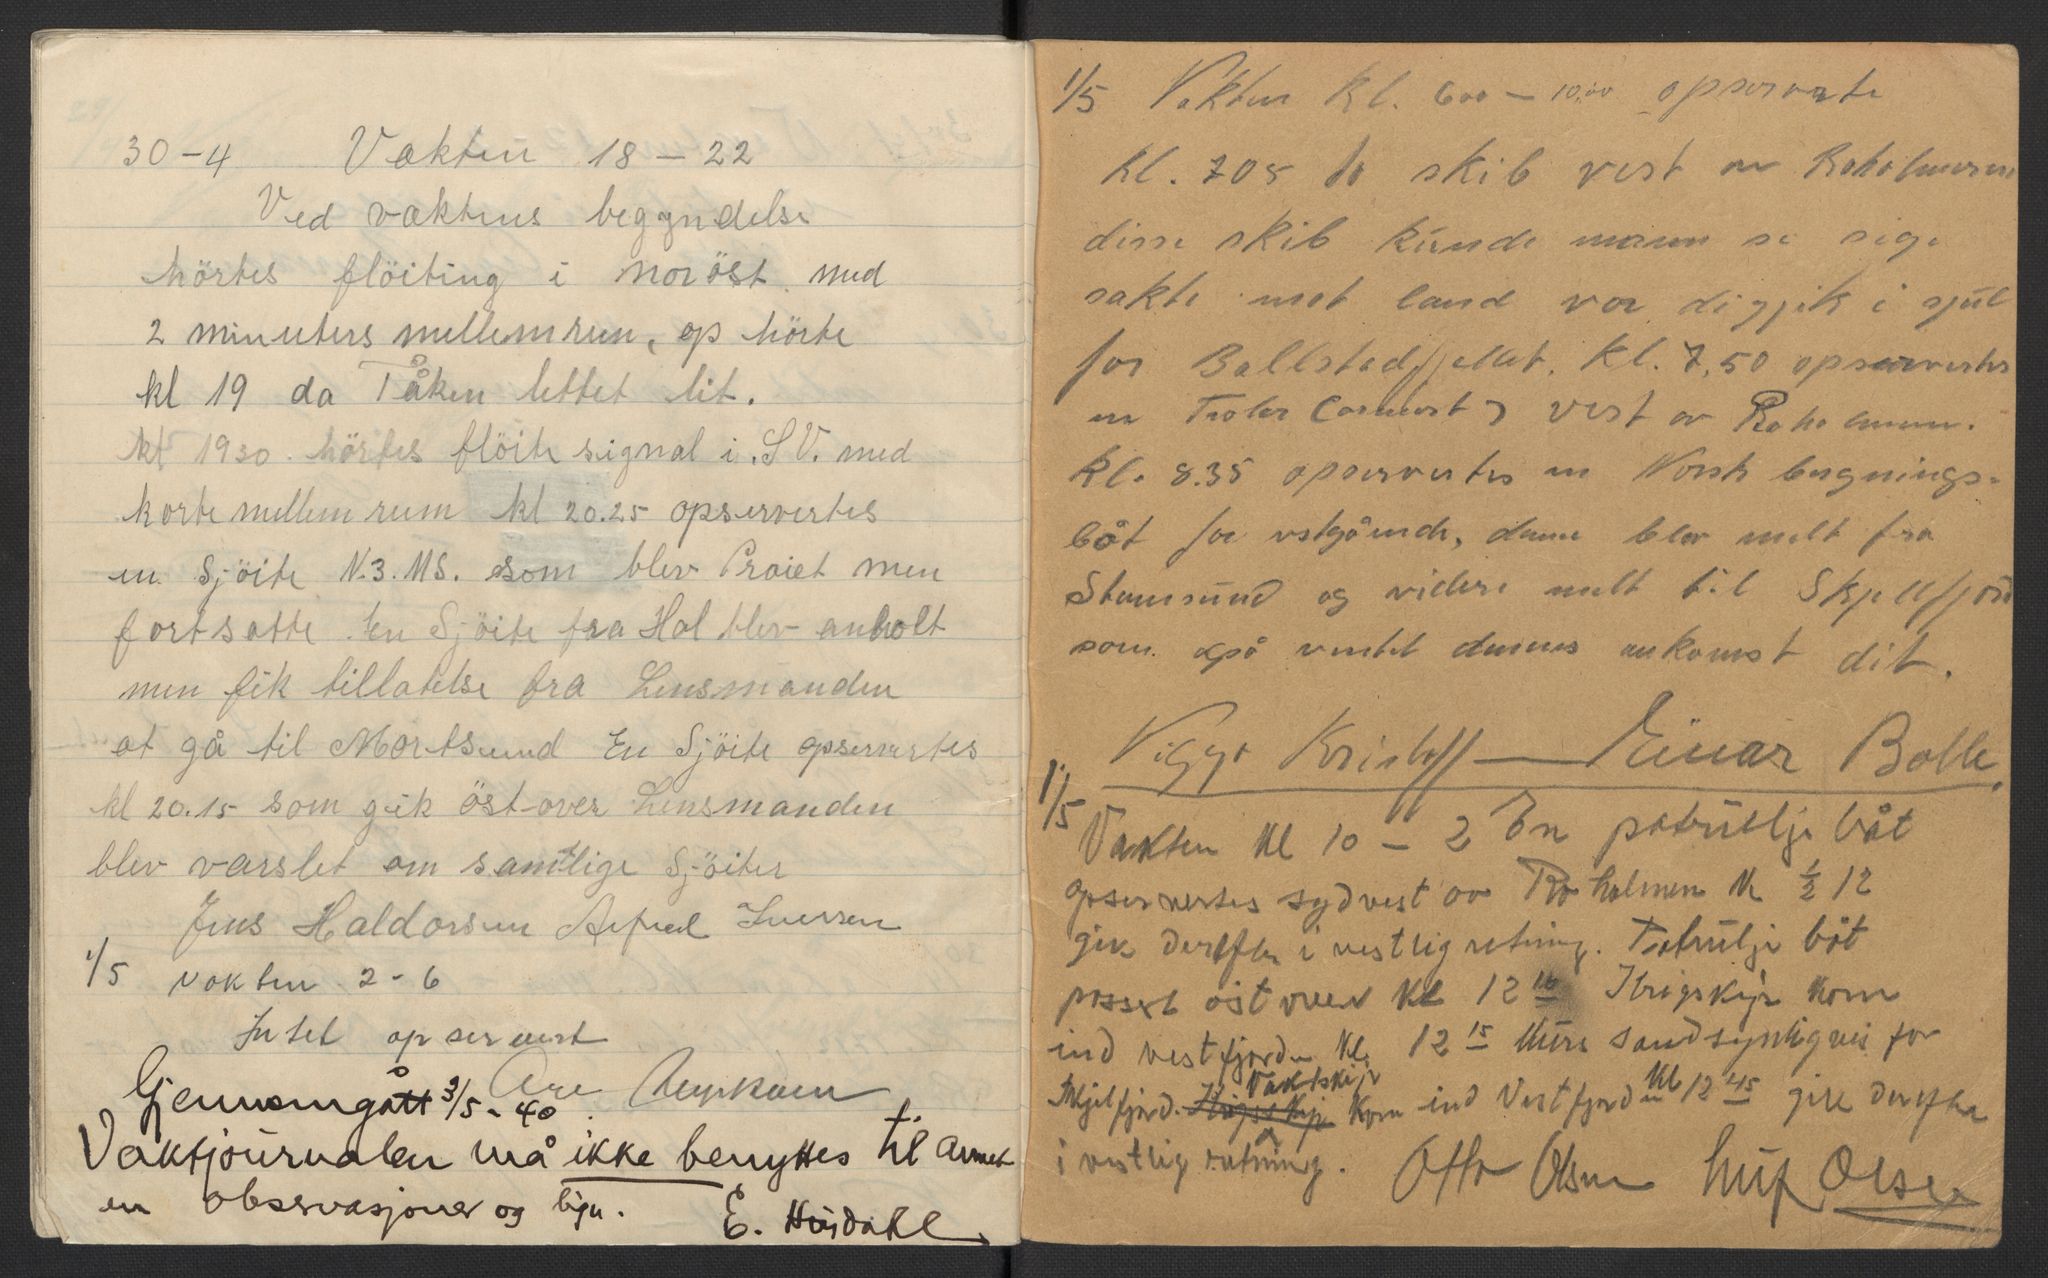 30-4 Vakten 18-22
Ved vaktens begyndelse
hörtes flöiting i noröst med
2 minuters mellemrum, op hörte
kl 19 da Tåken lettet lit.
kl 1930 hörtes flöite signal i. S V. med
korte mellemrum kl 20.25 opservertes
en Sjöite N.3.MS. som blev Praiet men
fortsatte. En Sjöite fra Hol blev anholt
men fik tillatelse fra Lensmanden
at gå til Mortsund En Sjöite opservertes
kl 20.15 som gik öst over Lensmanden
blev varslet om samtlige Sjöiter
Jens Haldorsen Alfred Iversen
1/5 vakten 2-6
Intet opservert
Are
Gjennomgått 3/5-40
Vaktjournalen må ikke benyttes til annet
en observasjoner og lign.
E. Hårdahl
1/5 Vakten Kl. 600 - 10,00 opserverte
kl. 705 to skib vest av
disse skib kunde mann se sige
sakte mot land var di gjik i sjul
for Ballstadfjellet. Kl. 7,50 opservertes
en Troler vest av Roholmen.
Kl. 8.35 opservertes en Norsk bergnings-
båt for estgående, denne blev melt fra
Stamsund og videre melt til Skjellfjord
som også ventet dennes ankomst dit.
Viggo Kristoff — Einar Bolle.
1/5
Vakten Kl 10 - 2 En patrulje båt
opservertes sydvest av Roholmen Kl 1/2 12
gik derefter i vestlig retning. Patrulje båt
passert öst over Kl 12 10 Krigskip kom
ind vestfjorden Kl. 12 15 kurs sandsynligvis for
Skjelfjord. Krigsskip Vaktskip kom ind Vestfjorden Kl 12 45 gik derefter
i vestlig retning. Otto Olsen Leif Olsen